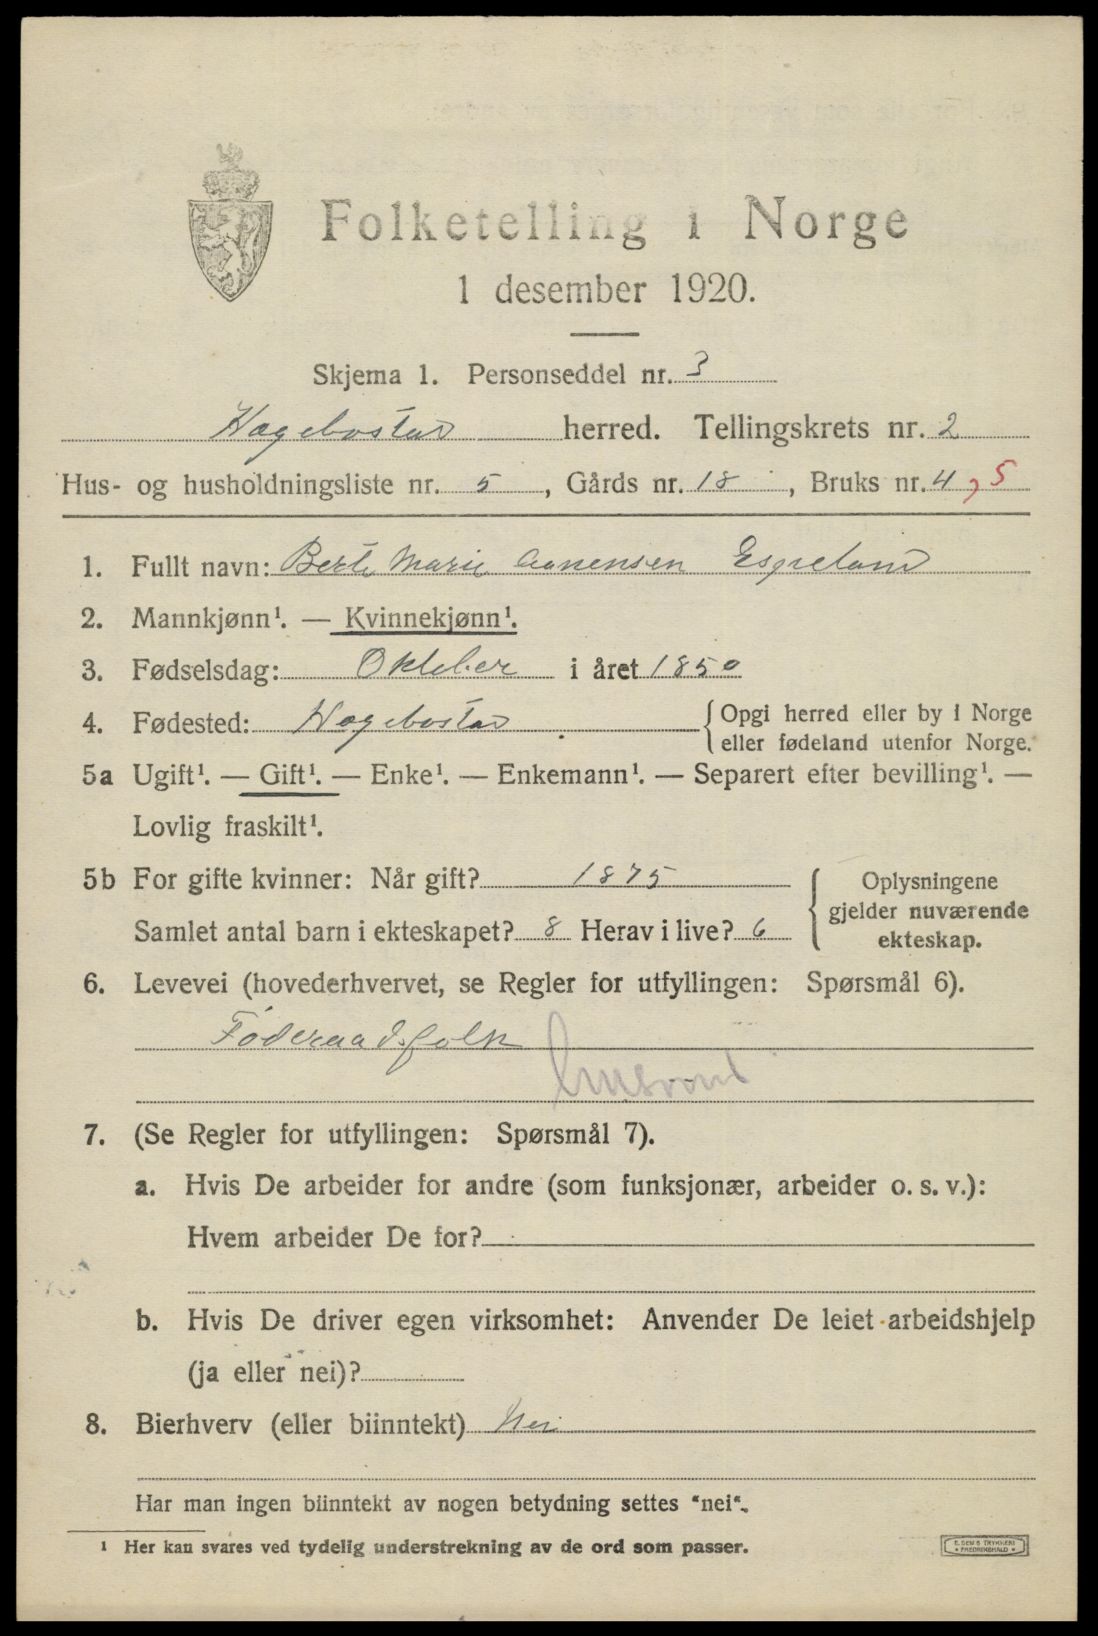 Folketelling i Norge
1 desember 1920.
Skjema 1. Personseddel nr. 3
Hægebostad herred. Tellingskrets nr. 2
Hus- og husholdningsliste nr. 5, Gårds nr. 18, Bruks nr. 4, 5
1. Fullt navn: Berte Marie Aanensen Espeland
2. Mannkjønn¹. — Kvinnekjønn¹.
3. Fødselsdag: Oktober i året 1850
4. Fødested: Hægebostad {Opgi herred eller by i Norge
eller fødeland utenfor Norge.
5a Ugift¹. — Gift¹. — Enke¹. — Enkemann¹. — Separert efter bevilling¹. —
Lovlig fraskilt¹.
5b For gifte kvinner: Når gift? 1875
Samlet antal barn i ekteskapet? 8 Herav i live? 6
Oplysningene
gjelder nuværende
ekteskap.
6. Levevei (hovederhvervet, se Regler for utfyllingen: Spørsmål 6).
Føderaadsfolk
7. (Se Regler for utfyllingen: Spørsmål 7).
a. Hvis De arbeider for andre (som funksjonær, arbeider o. s. v.):
Hvem arbeider De for?
b. Hvis De driver egen virksomhet: Anvender De leiet arbeidshjelp
(ja eller nei)?
8. Bierhverv (eller biinntekt) Nei
Har man ingen biinntekt av nogen betydning settes "nei".
¹ Her kan svares ved tydelig understrekning av de ord som passer.
E. SEM'S TRYKKERI
FREDRIKSHALD